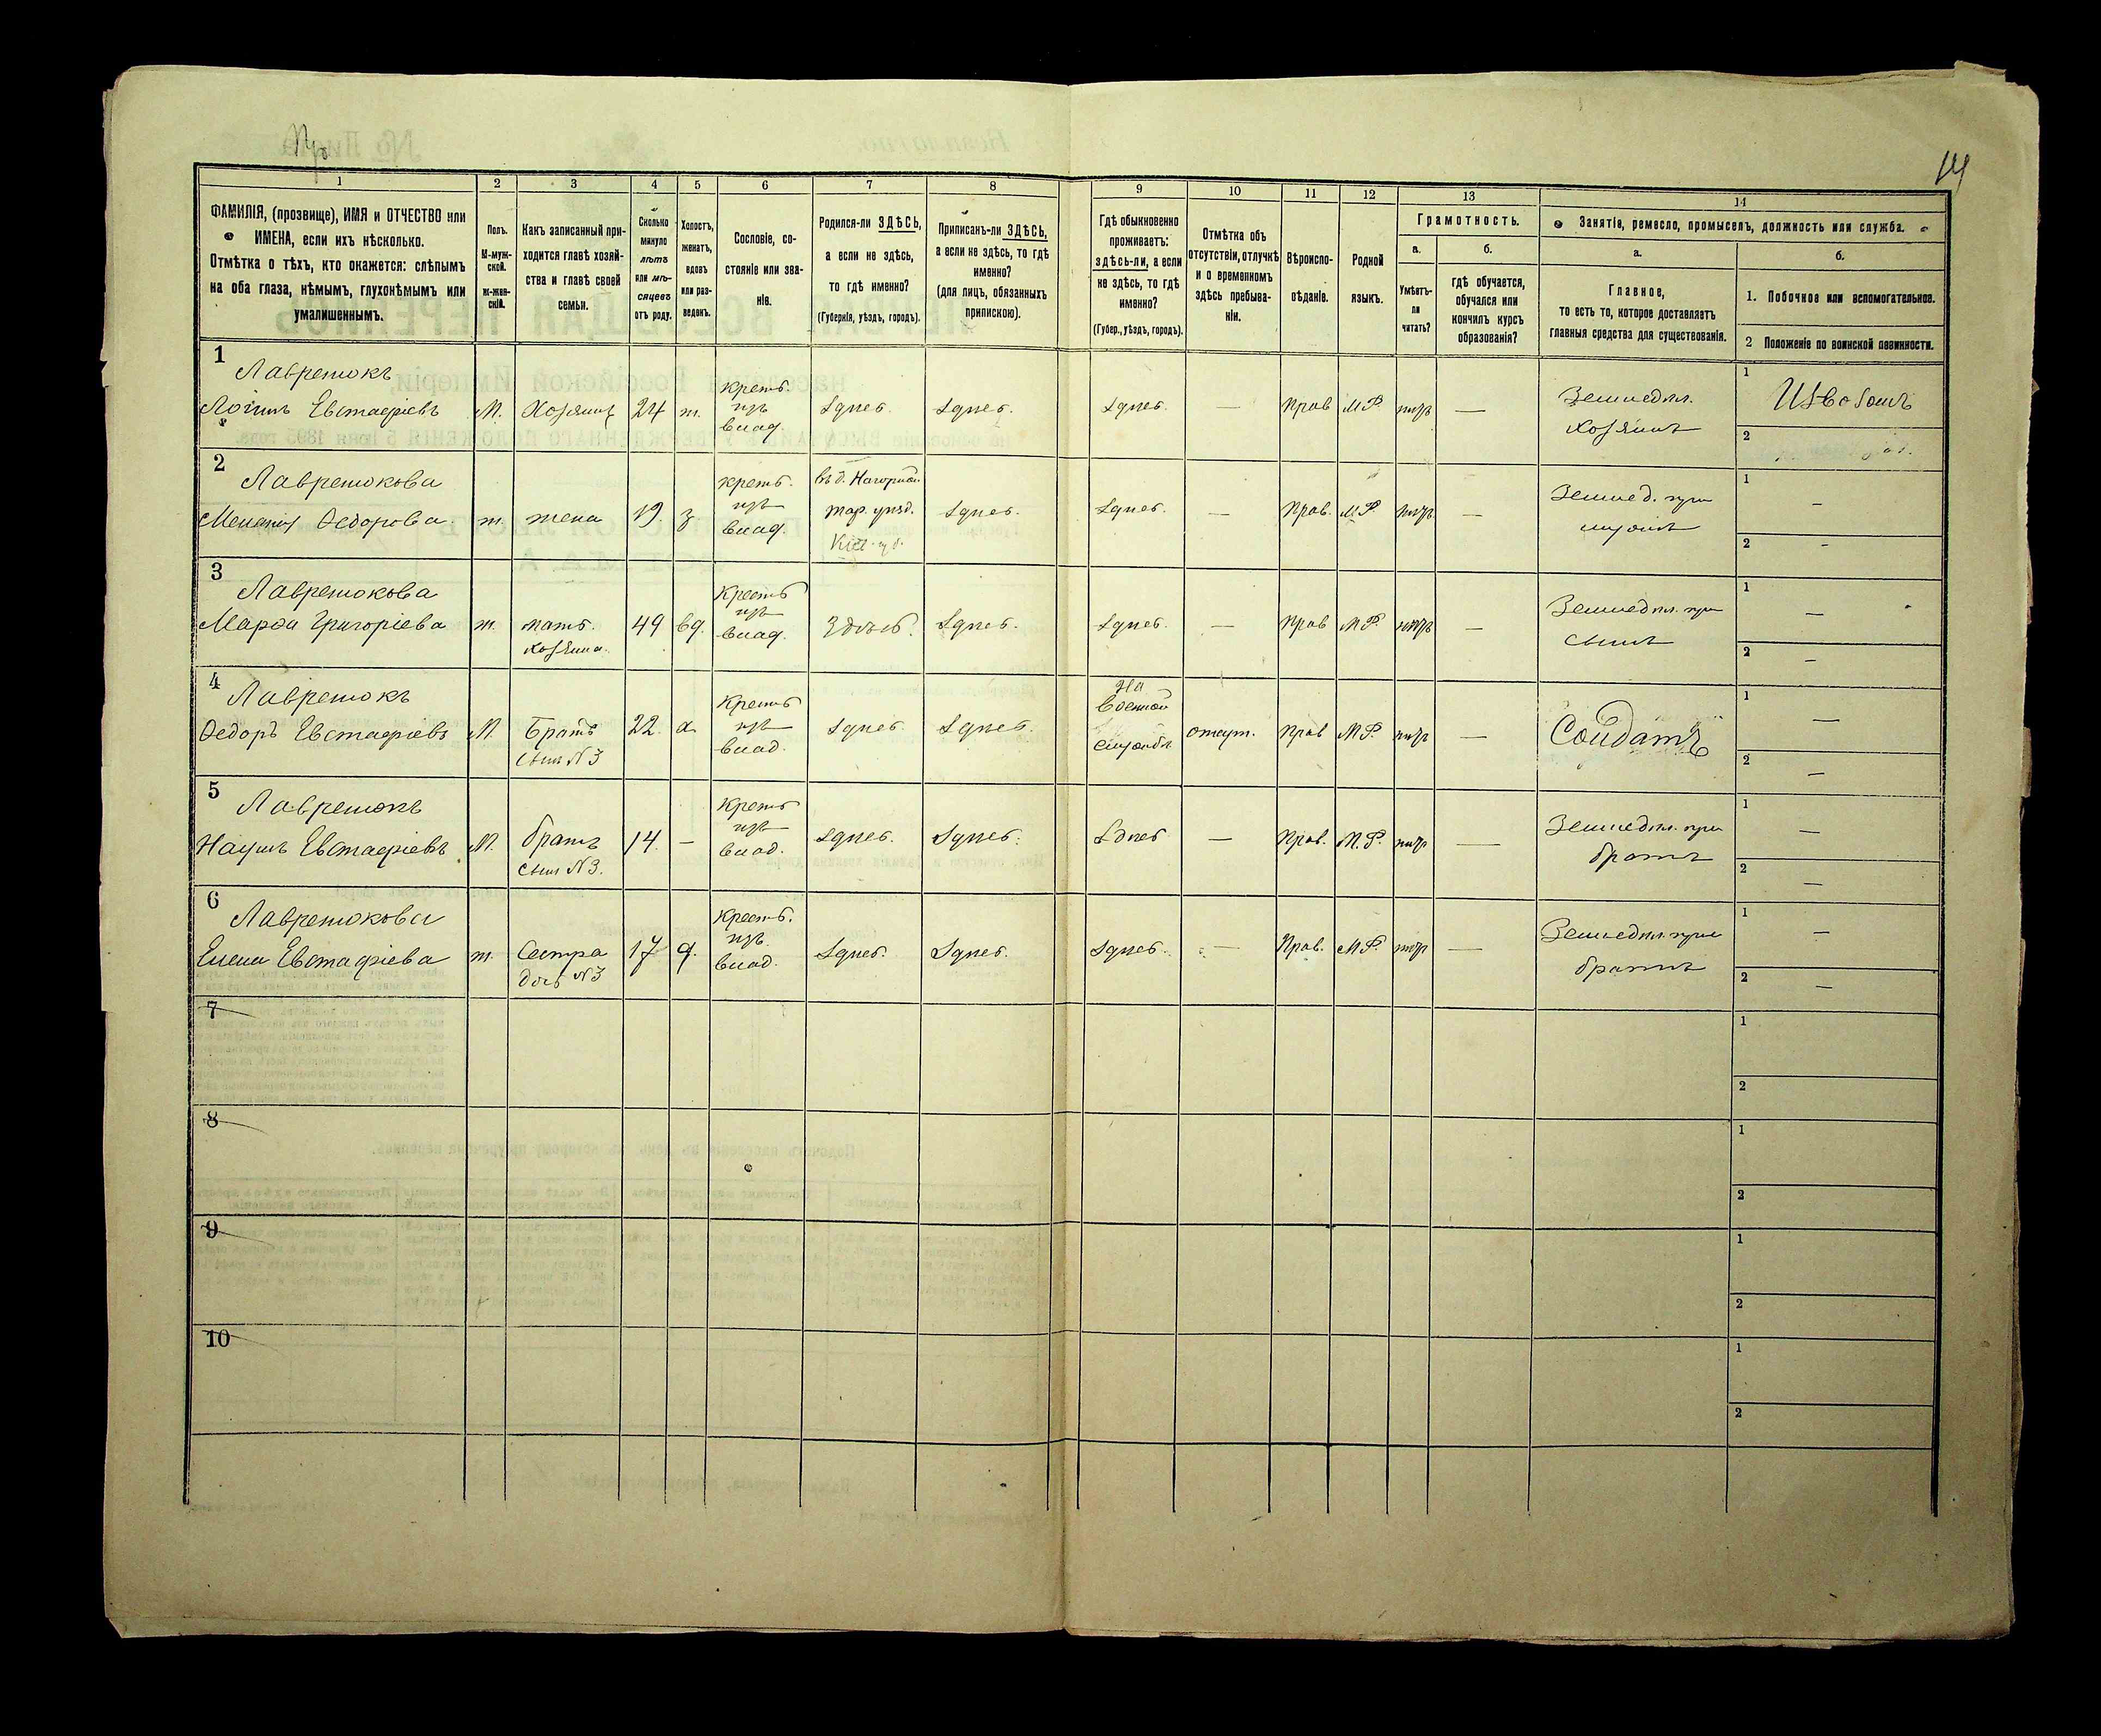 14
1
2
3
4
5
6
7
8
9
10
11
12
13
14
ФАМИЛІЯ, (прозвище), ИМЯ и ОТЧЕСТВО или
ИМЕНА, если ихъ нѣсколько.
Отмѣтка о тѣхъ, кто окажется: слѣпымъ
на оба глаза, нѣмымъ, глухонѣмымъ или
умалишеннымъ.
Полъ.
М-муж-
ской.
ж-жен-
скій.
Какъ записанный при-
ходится главѣ хозяй-
ства и главѣ своей
семьи.
Сколько
минуло
лѣтъ
или мѣ-
сяцевъ
отъ роду.
Холостъ,
женатъ,
вдовъ
или раз-
веденъ.
Сословіе, со-
стояніе или зва-
ніе.
Родился-ли ЗДѢСЬ,
а если не здѣсь,
то гдѣ именно?
(Губернія, уѣздъ, городъ).
Приписанъ-ли ЗДѢСЬ,
а если не здѣсь, то гдѣ
именно?
(для лицъ, обязанныхъ
припискою).
Гдѣ обыкновенно
проживаетъ:
здѣсь-ли, а если
не здѣсь, то гдѣ
именно?
(Губер., уѣздъ, городъ).
Отмѣтка объ
отсутствіи, отлучкѣ
и о временномъ
здѣсь пребыва-
ніи.
Вѣроиспо-
вѣданіе.
Родной
языкъ.
Грамотность.
а.
Умѣетъ-
ли
читать?
б.
гдѣ обучается,
обучался или
кончилъ курсъ
образованія?
Занятіе, ремесло, промыселъ, должность или служба.
а.
Главное,
то есть то, которое доставляетъ
главныя средства для существованія.
б.
1. Побочное или вспомогательное.
2 Положеніе по воинской повинности.
1
Лавренюкъ
Логинъ Евстафіевъ
М.
Хозяинъ
24
ж.
крестъ.
изъ
влад.
Здѣсь.
Здѣсь.
Здѣсь.
—
Прав
М.Р.
—
Земледѣл.
хозяинъ
1
Извозомъ
2
2
Лавренюкова
Федорова.
ж.
жена
19.
з
крестъ.
изъ
влад.
въ д. Нагорной
тар. уѣзд.
Кіев. губ.
Здѣсь.
Здѣсь.
—
Прав.
М.Р.
—
Землед. при
мужѣ
1
—
2
—
3
Лавренюкова
Марфа Григоріева
ж.
мать
хозяина.
49
вд.
Крестъ
изъ
влад.
Здѣсь.
Здѣсь.
Здѣсь.
—
Прав
М.Р.
—
Земледѣл. при
сынѣ
1
—
2
—
4
Лавренюкъ
Федоръ Евстафіевъ
М.
Братъ
сынъ №3
22.
х.
Крестъ
изъ
влад.
Здѣсь.
Здѣсь.
На
военной
службѣ
отсут.
Прав
М.Р.
—
Солдатъ
1
—
2
—
5
Лавренюкъ
Наумъ Евстафіевъ
М.
братъ
сынъ №3.
14.
—
Крестъ
изъ
влад.
Здѣсь.
Здѣсь.
Здѣсь
—
Прав.
М.Р.
—
Земледѣл. при
братѣ
1
—
2
—
6
Лавренюкова
Елена Евстафіева
ж.
Сестра
дочь №3
17
д.
Крестъ.
изъ
влад.
Здѣсь.
Здѣсь.
Здѣсь.
—
Прав.
М.Р.
—
Земледѣл. при
братѣ
1
—
2
—
7
1
2
8
1
2
9
1
2
10
1
2